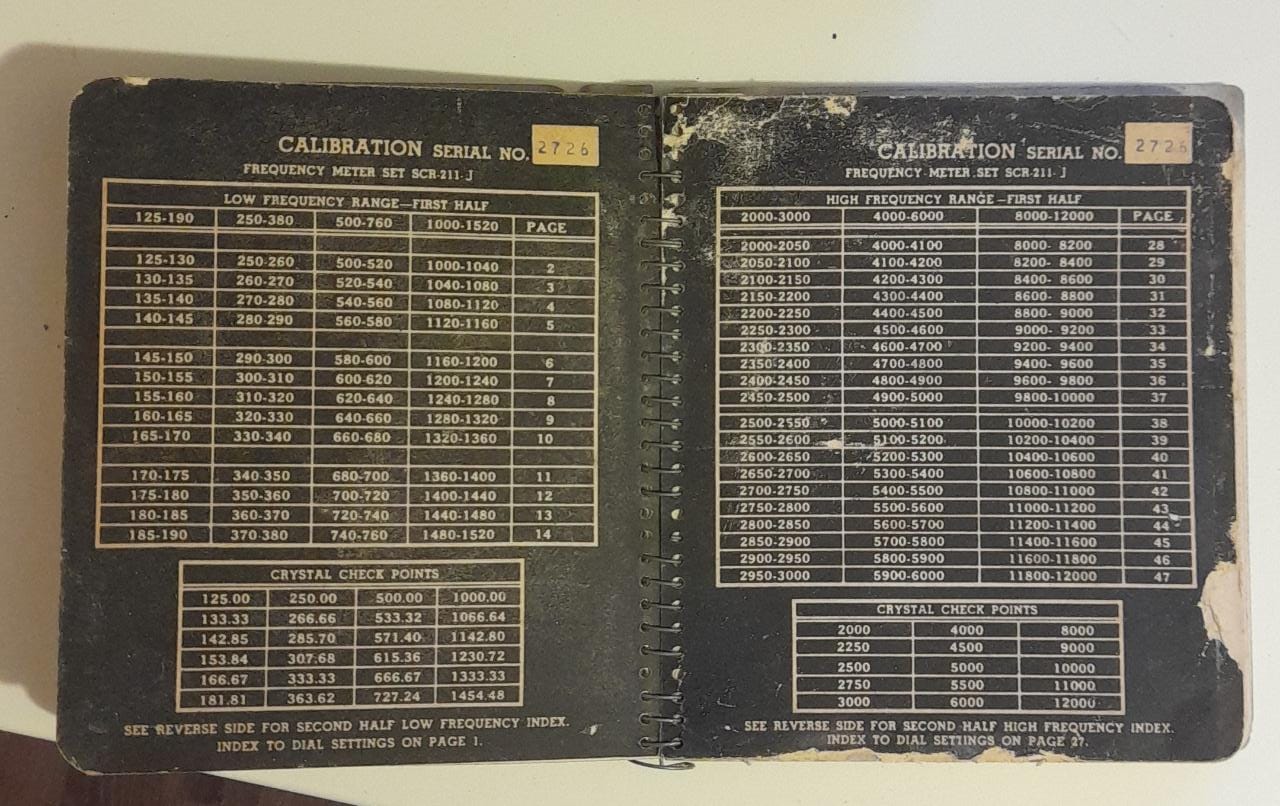 CALIBRATION SERIAL NO. 2726
FREQUENCY METER SET SCR-211- J
LOW FREQUENCY RANGE—FIRST HALF
125-190 250-380 500-760 1000-1520 PAGE
125-130 250-260 500-520 1000-1040 2
130-135 260-270 520-540 1040-1080 3
135-140 270-280 540-560 1080-1120 4
140-145 280-290 560-580 1120-1160 5
145-150 290-300 580-600 1160-1200 6
150-155 300-310 600-620 1200-1240 7
155-160 310-320 620-640 1240-1280 8
160-165 320-330 640-660 1280-1320 9
165-170 330-340 660-680 1320-1360 10
170-175 340-350 680-700 1360-1400 11
175-180 350-360 700-720 1400-1440 12
180-185 360-370 720-740 1440-1480 13
185-190 370-380 740-760 1480-1520 14
CRYSTAL CHECK POINTS
125.00 250.00 500.00 1000.00
133.33 266.66 533.32 1066.64
142.85 285.70 571.40 1142.80
153.84 307.68 615.36 1230.72
166.67 333.33 666.67 1333.33
181.81 363.62 727.24 1454.48
SEE REVERSE SIDE FOR SECOND HALF LOW FREQUENCY INDEX.
INDEX TO DIAL SETTINGS ON PAGE 1.
CALIBRATION SERIAL NO. 2726
FREQUENCY METER SET SCR-211- J
HIGH FREQUENCY RANGE—FIRST HALF
2000-3000 4000-6000 8000-12000 PAGE
2000-2050 4000-4100 8000- 8200 28
2050-2100 4100-4200 8200- 8400 29
2100-2150 4200-4300 8400- 8600 30
2150-2200 4300-4400 8600- 8800 31
2200-2250 4400-4500 8800- 9000 32
2250-2300 4500-4600 9000- 9200 33
2300-2350 4600-4700 9200- 9400 34
2350-2400 4700-4800 9400- 9600 35
2400-2450 4800-4900 9600- 9800 36
2450-2500 4900-5000 9800-10000 37
2500-2550 5000-5100 10000-10200 38
2550-2600 5100-5200 10200-10400 39
2600-2650 5200-5300 10400-10600 40
2650-2700 5300-5400 10600-10800 41
2700-2750 5400-5500 10800-11000 42
2750-2800 5500-5600 11000-11200 43
2800-2850 5600-5700 11200-11400 44
2850-2900 5700-5800 11400-11600 45
2900-2950 5800-5900 11600-11800 46
2950-3000 5900-6000 11800-12000 47
CRYSTAL CHECK POINTS
2000 4000 8000
2250 4500 9000
2500 5000 10000
2750 5500 11000
3000 6000 12000
SEE REVERSE SIDE FOR SECOND HALF HIGH FREQUENCY INDEX.
INDEX TO DIAL SETTINGS ON PAGE 27.